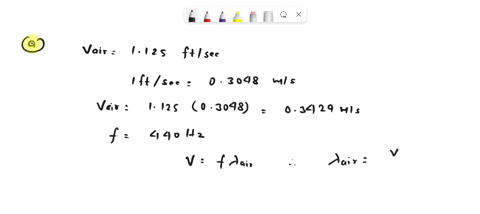 a
Vair = 1.125 ft/sec
1ft/sec = 0.3048 m/s
Vair = 1.125 (0.3048) = 0.3429 m/s
f = 440 Hz
V = f λair ∴ λair = V